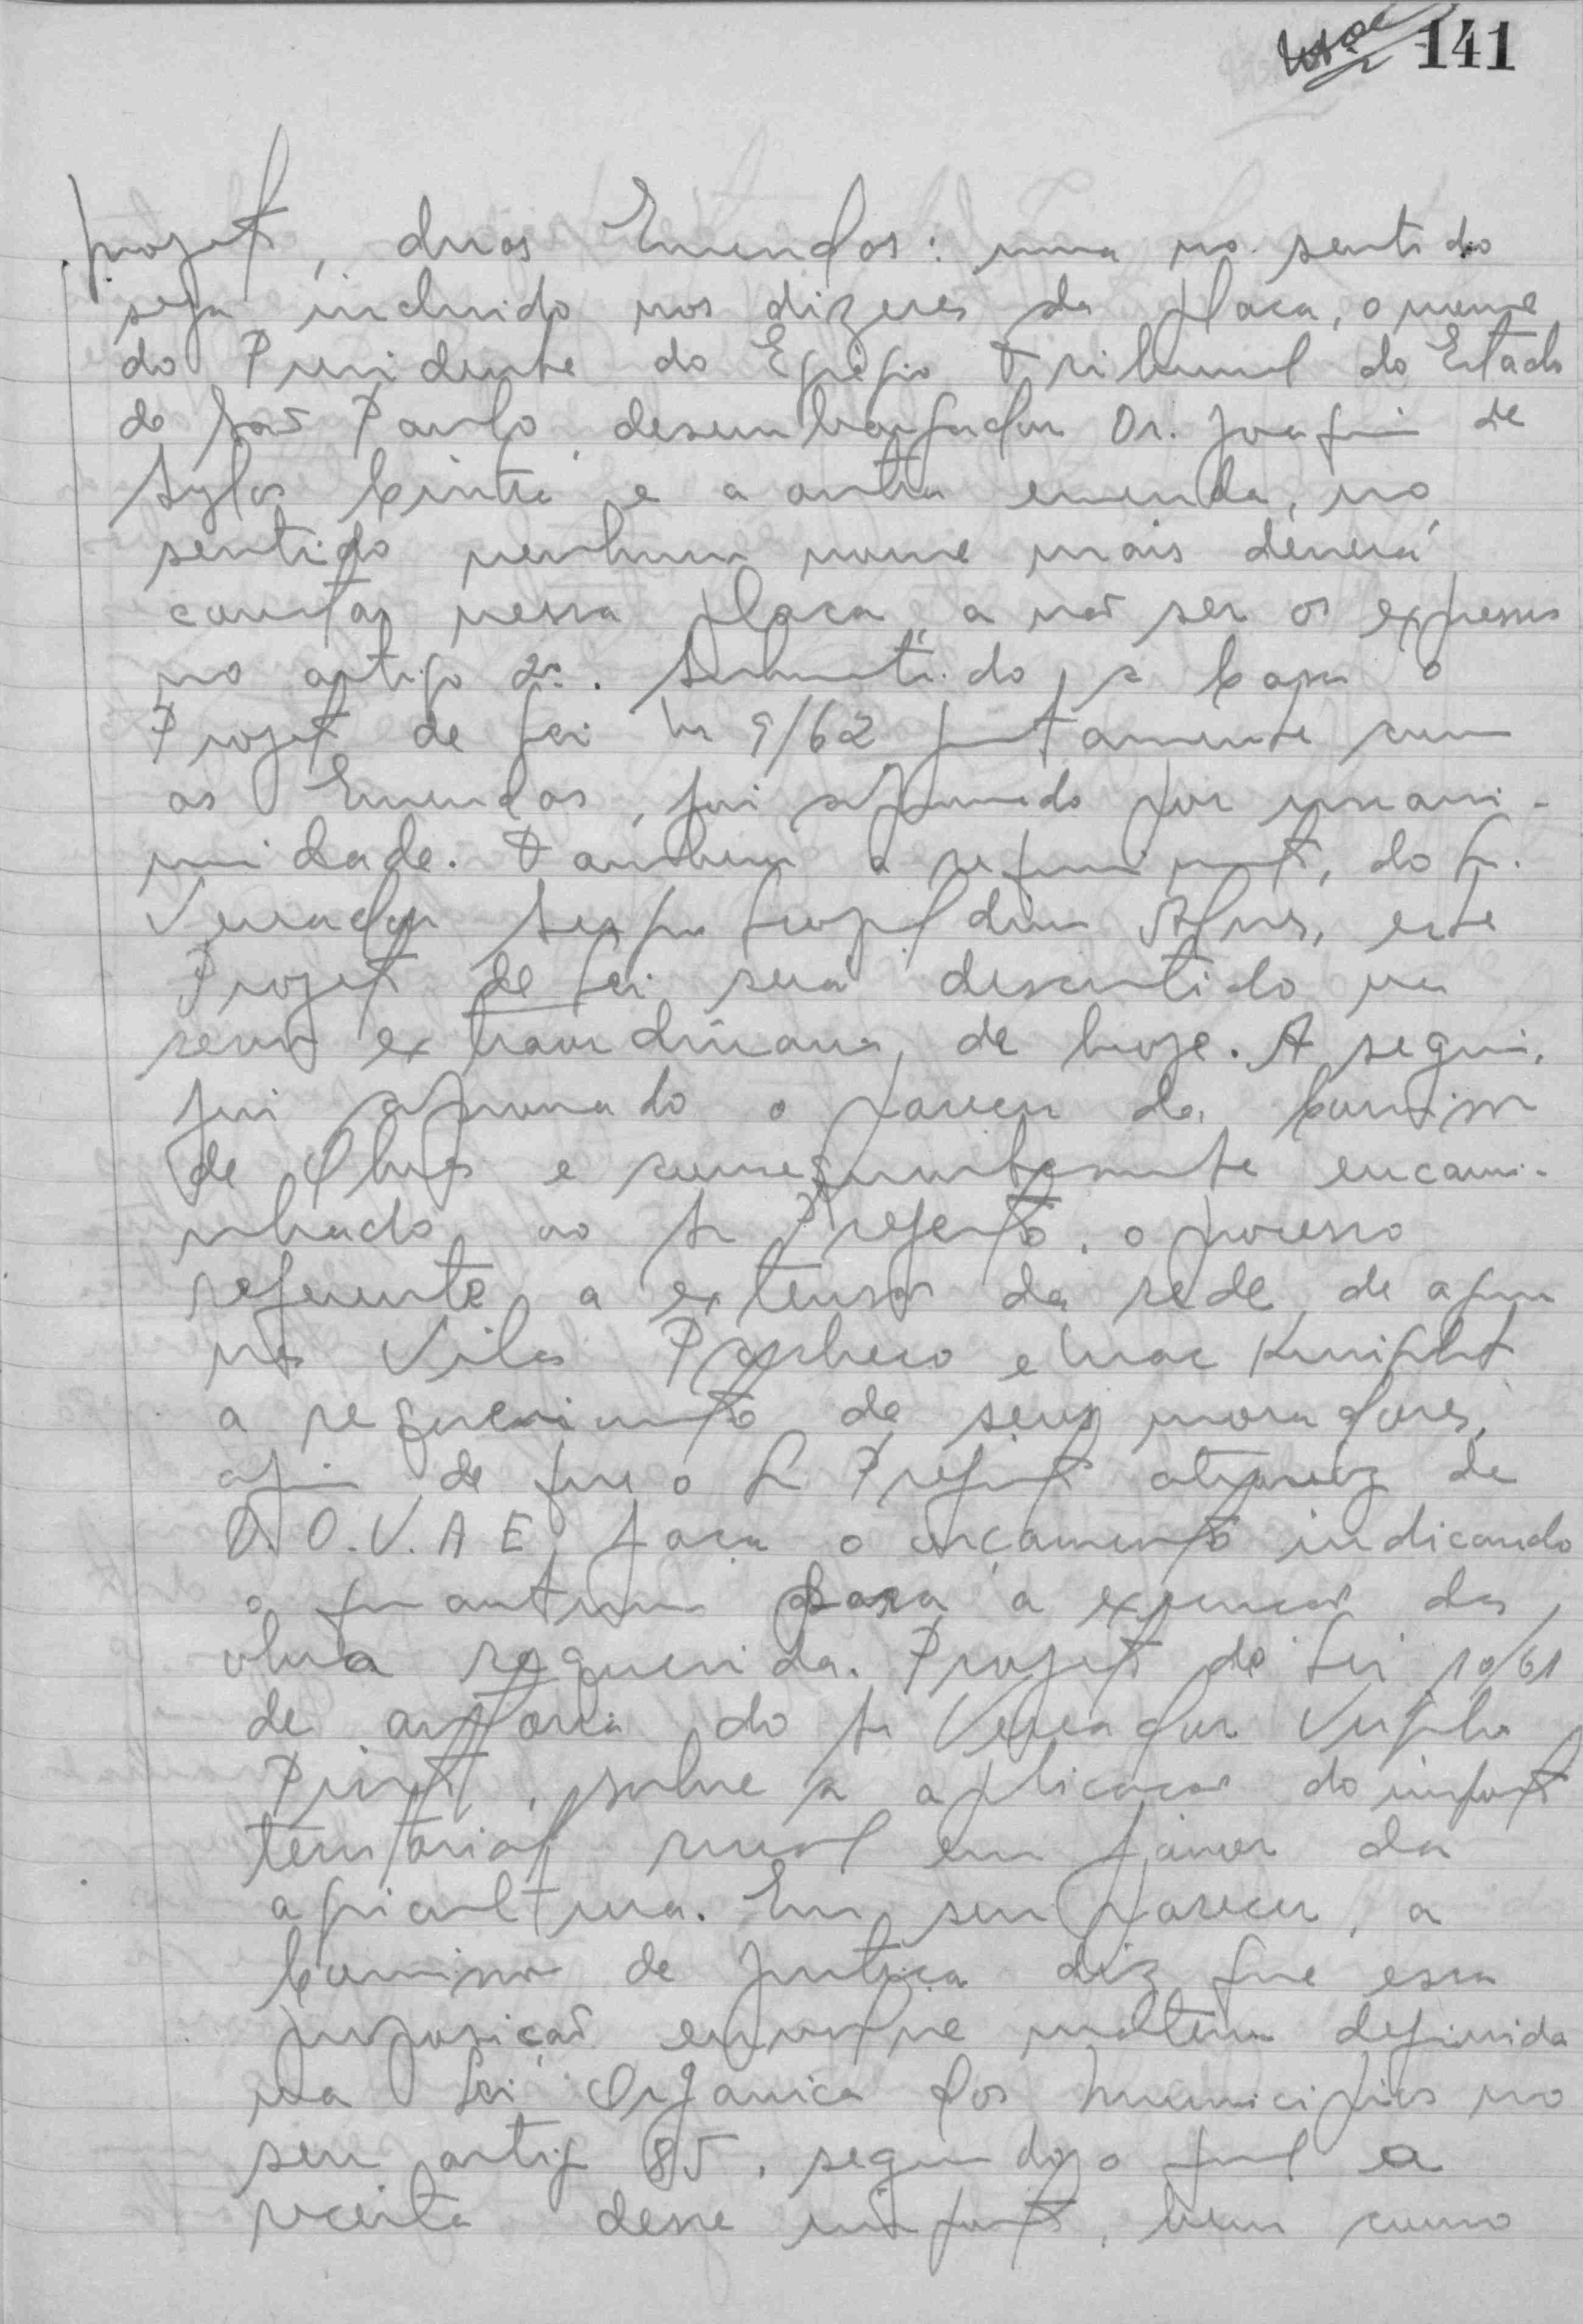 141
projeto, duas Emendas: uma no sentido
seja incluido nos dizeres da placa, o nome
do Presidente do Egregio Tribunal do Estado
de São Paulo, desembargador Dr. Joaquim de
Sylos Cintra e a outra emenda, no
sentido nenhum nome mais deverá
constar nessa placa, a não ser os expressos
no artigo 2º. Submetido, a Casa o
Projeto de Lei nº 9/62 juntamente com
as Emendas, foi aprovado por unani-
midade. Tambem a requerimento, do Sr.
Vereador Alves, este
Projeto de Lei será discutido na
sessão extraordinaria, de hoje. A seguir,
foi aprovado o parecer da Comissão
de Obras e consequentemente encami-
nhado ao Sr Prefeito, o processo
referente a extensão da rede, de agua
nas Vilas Pacheco e Mac Knight
a requerimento de seus moradores,
afim de que o Sr Prefeito atravez de
D.O.V.A E, faça o orçamento indicando
o quantum para a execução da
obra requerida. Projeto de Lei 10/61
de autoria do Sr Vereador Virgilio
Pinto, sobre a aplicação do imposto
territorial rural em favor da
agricultura. Em seu parecer, a
Comissão de Justiça diz que essa
proposição envolve materia definida
na Lei Orgânica dos Municipios no
seu artigo 85, segundo o qual a
receita desse imposto, bem como